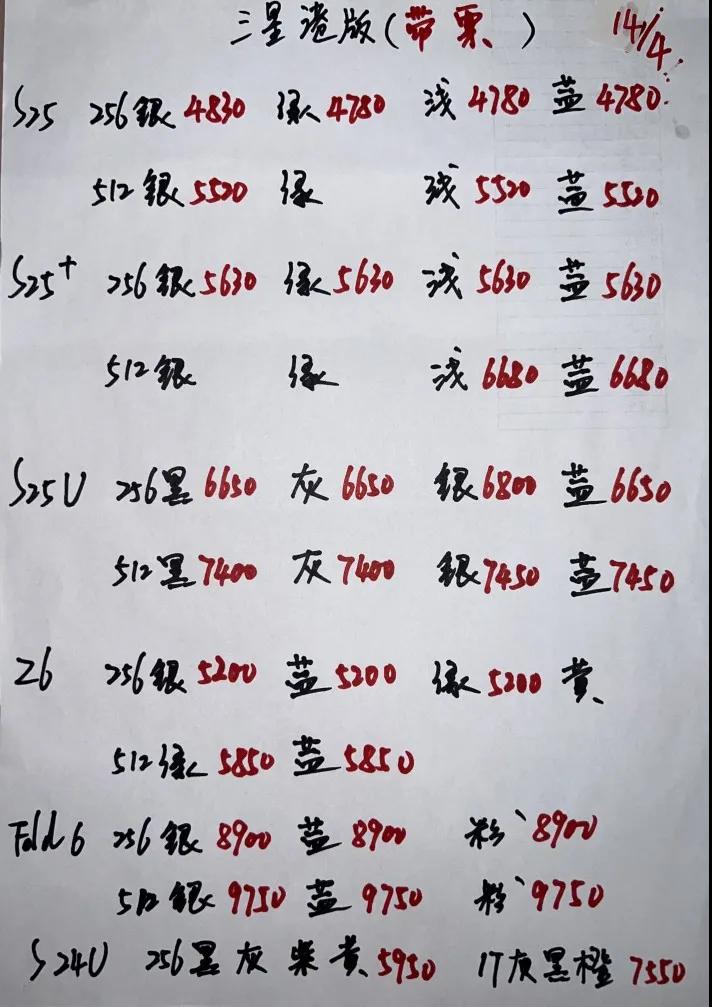 三星港版(带票) 14/4
S25 256銀4830 绿4780 浅4780 蓝4780
512銀5520 绿 浅5520 蓝5520
S25+ 256銀5630 绿5630 浅5630 蓝5630
512銀 绿 浅6680 蓝6680
S25U 256黑6650 灰6650 銀6800 蓝6650
512黑7400 灰7400 銀7450 蓝7450
Z6 256銀5200 蓝5200 绿5200 黄
512绿5850 蓝5850
Fold6 256銀8900 蓝8900 粉8900
512銀9750 蓝9750 粉9750
S24U 256黑灰紫黄5950 1T灰黑橙7550